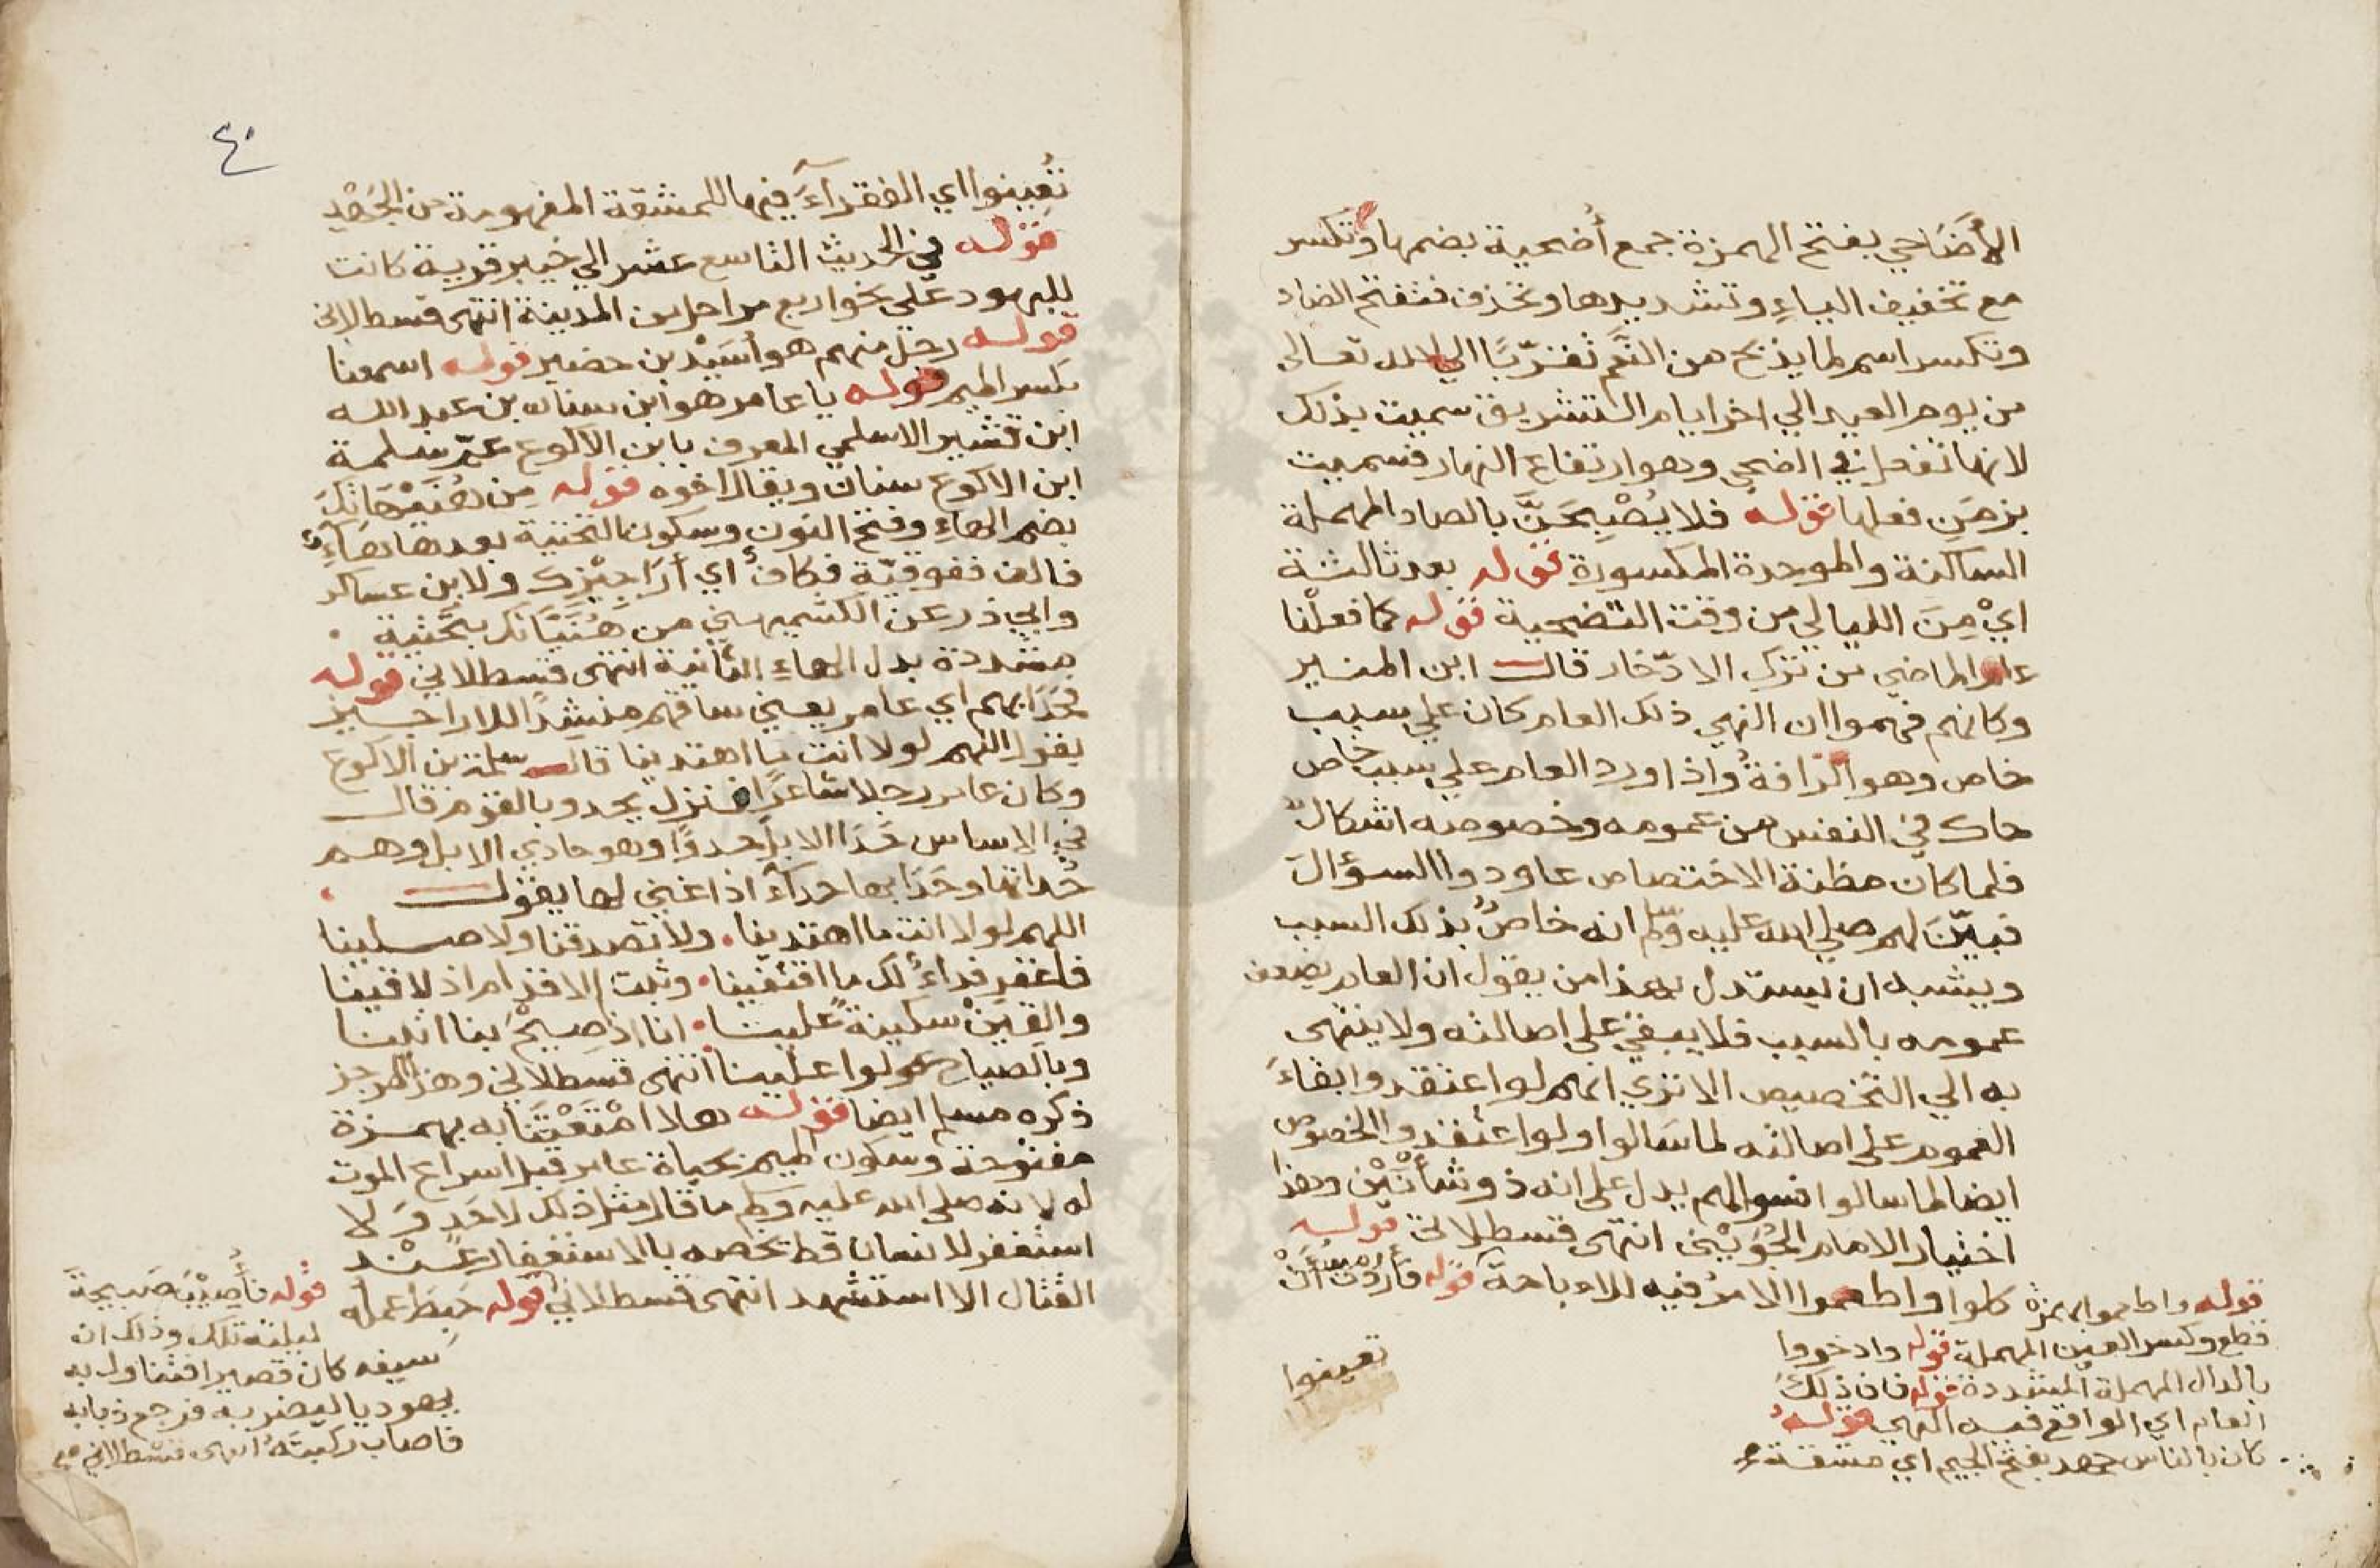 الأضاحي بفتح الهمزة جمع أُضحية بضمها وتكسر
مع تخفيف الياءِ وتشديدها وتحذف فتفتح الضاد
وتكسر اسم لما يذبح من النَّعَم تقرّبًا الي الله تعالى
من يوم العيد الي اخر ايام التشريق سميت بذلك
لانها تفعل في الضحي وهو ارتفاع النهار فسميت
بزمَنِ فعلها قوله فلا يُصْبِحَنَّ بالصاد المهملة
الساكنة والموحدة المكسورة قوله بعد ثالثة
ايْ مِنَ الليالي من وقت التضحية قوله كما فعلْنا
عام الماضي من ترك الادّخار قال ابن المنير
وكانهم فهموا ان النهي ذلك العام كان علي سبب
خاص وهو الدّافةُ واذا ورد العام علي سبب خاص
حاك في النفس من عمومه وخصوصه اشكالٌ
فلما كان مظنة الاختصاص عاودوا السؤالَ
فبيّنَ لهم صلي الله عليه وسلم انه خاصٌ بذلك السبب
ويشبه ان يستدل بهذا من يقول ان العام يضعف
عمومه بالسبب فلا يبقي علي اصالته ولا ينتهى
به الي التخصيص الا تري انهم لو اعتقدوا بقاءَ
العموم علي اصالته لما سَالوا ولو اعتقدوا الخصوص
ايضا لما سالوا فسوالهم يدل علي انه ذو شأنَيْن وهذا
اختيار الامام الجُوَيْنى انتهى قسطلاني قوله
كلوا واطعموا الامرُ فيه للاباحة قوله فأردْتُ أنْ
تعينوا
قوله واطعموا بهمزة
قطع وكسر العين المهملة قوله وادخروا
بالدال المهملة المشددة قوله فان ذلك
العام اي الواقع فيه النهي قوله
كان بالناس جهد بفتح الجيم اي مشقة
٤٠
تُعِينوا اي الفقرآءَ فيها للمشقة المفهومة من الجَهْدِ
قوله في الحديث التاسع عشر الي خيبر قرية كانت
لليهود على نحو اربع مراحل من المدينة انتهى قسطلاني
قوله رجل منهم هو أسَيْد بن حضير قوله اسمعنا
بكسر الميم قوله يا عامر هو ابن سنان بن عبد الله
ابن قشير الاسلمي المعرف بابن الاكوع عمّ سلمة
ابن الاكوع سنان ويقال اخوه قوله مِن هُنَيْهَاتِكَ
بضم الهاءِ وفتح النون وسكون التحتية بعدها هاءٌ
فالف ففوقيّة فكاف أي أرَاجيْزِك ولابن عساكر
وابي ذر عن الكشميهني من هُنَيَّاتك بتحتية
مشددة بدل الهاءِ الثانية انتهى قسطلاني قوله
فحَدَا بهم اي عامر يعني ساقهم منشِدًا للاراجيز
يقول اللهم لولا انت ما اهتدينا قال سلمة بن الاكوع
وكان عامر رجلا شاعرًا فنزل يحدو بالقوم قال
في الاساس حَدَا الابل حدوًا وهو حادي الابل وهم
حُداتها وحَدَا بها حدآءً اذا غنى لها يقول
اللهم لولا انت ما اهتدينا. ولا تصدقنا ولا صلينا
فاغفر فداءً لك ما اقتفينا. وثبت الاقدام اذ لاقينا
والقِينْ سكينةً علينا. انا اذ صِيْحَ بنا اتينا
وبالصياح عولوا علينا انتهى قسطلاني وهذا الرجز
ذكره مسلم ايضا قوله هلا امْتَعْتَنَا به بهمزة
مفتوحة وسكون الميم بحياة عامر قبل اسراع الموت
له لانه صلي الله عليه وسلم ما قال مثل ذلك لاحَدٍ وَلا
استغفر لانسان قط يخصه بالاستغفار عِنْد
القتال الا استشهد انتهى قسطلاني قوله حَبِطَ عمله
قوله فأُصِيْبَ صَبيحةَ
ليلته تلك وذلك ان
سيفه كان قصيرا فتناول به
يهوديا ليضربه فرجع ذبابه
فاصاب ركبتَهُ انتهى قسطلاني صح